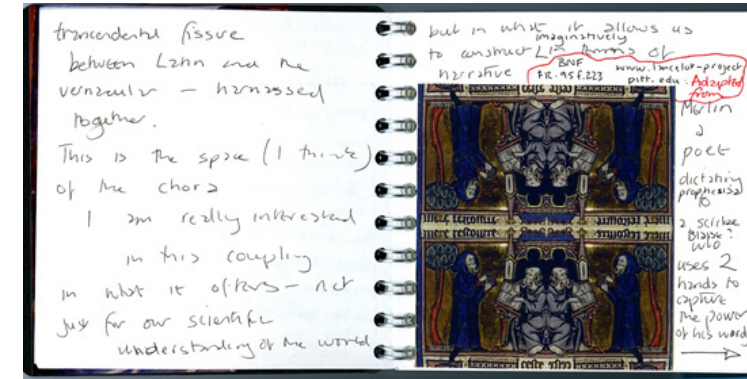 transcendental fissure
between Latin and the
vernacular – harnessed
together.
This is the space (I think)
of the chora
I am really interested
in this coupling
in what it offers – not
just for our scientific
understanding of the world
but in what it allows us
imaginatively
to construct in terms of
narrative
BNF
FR. 95 f.223
www.lancelot-project
pitt.edu. Adapted
from
Merlin
a
poet
dictating
prophesies
to
a scribe
Blaise?
who
uses 2
hands to
capture
the power
of his words